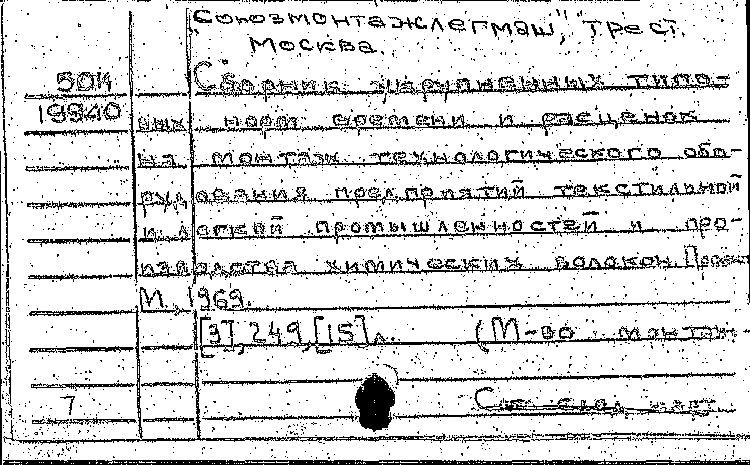 "Союзмонтажлегмаш", трест.
Москва.
Сборник укрупненных типо-
вых норм времени и расценок
на монтаж технологического обо-
рудования предприятий текстильной
и легкой промышленностей и про-
изводства химических волокон. Проект
М., 1969.
[3], 249, [15] л. (М-во монтаж.
См. след. карт.
50И
19940
7